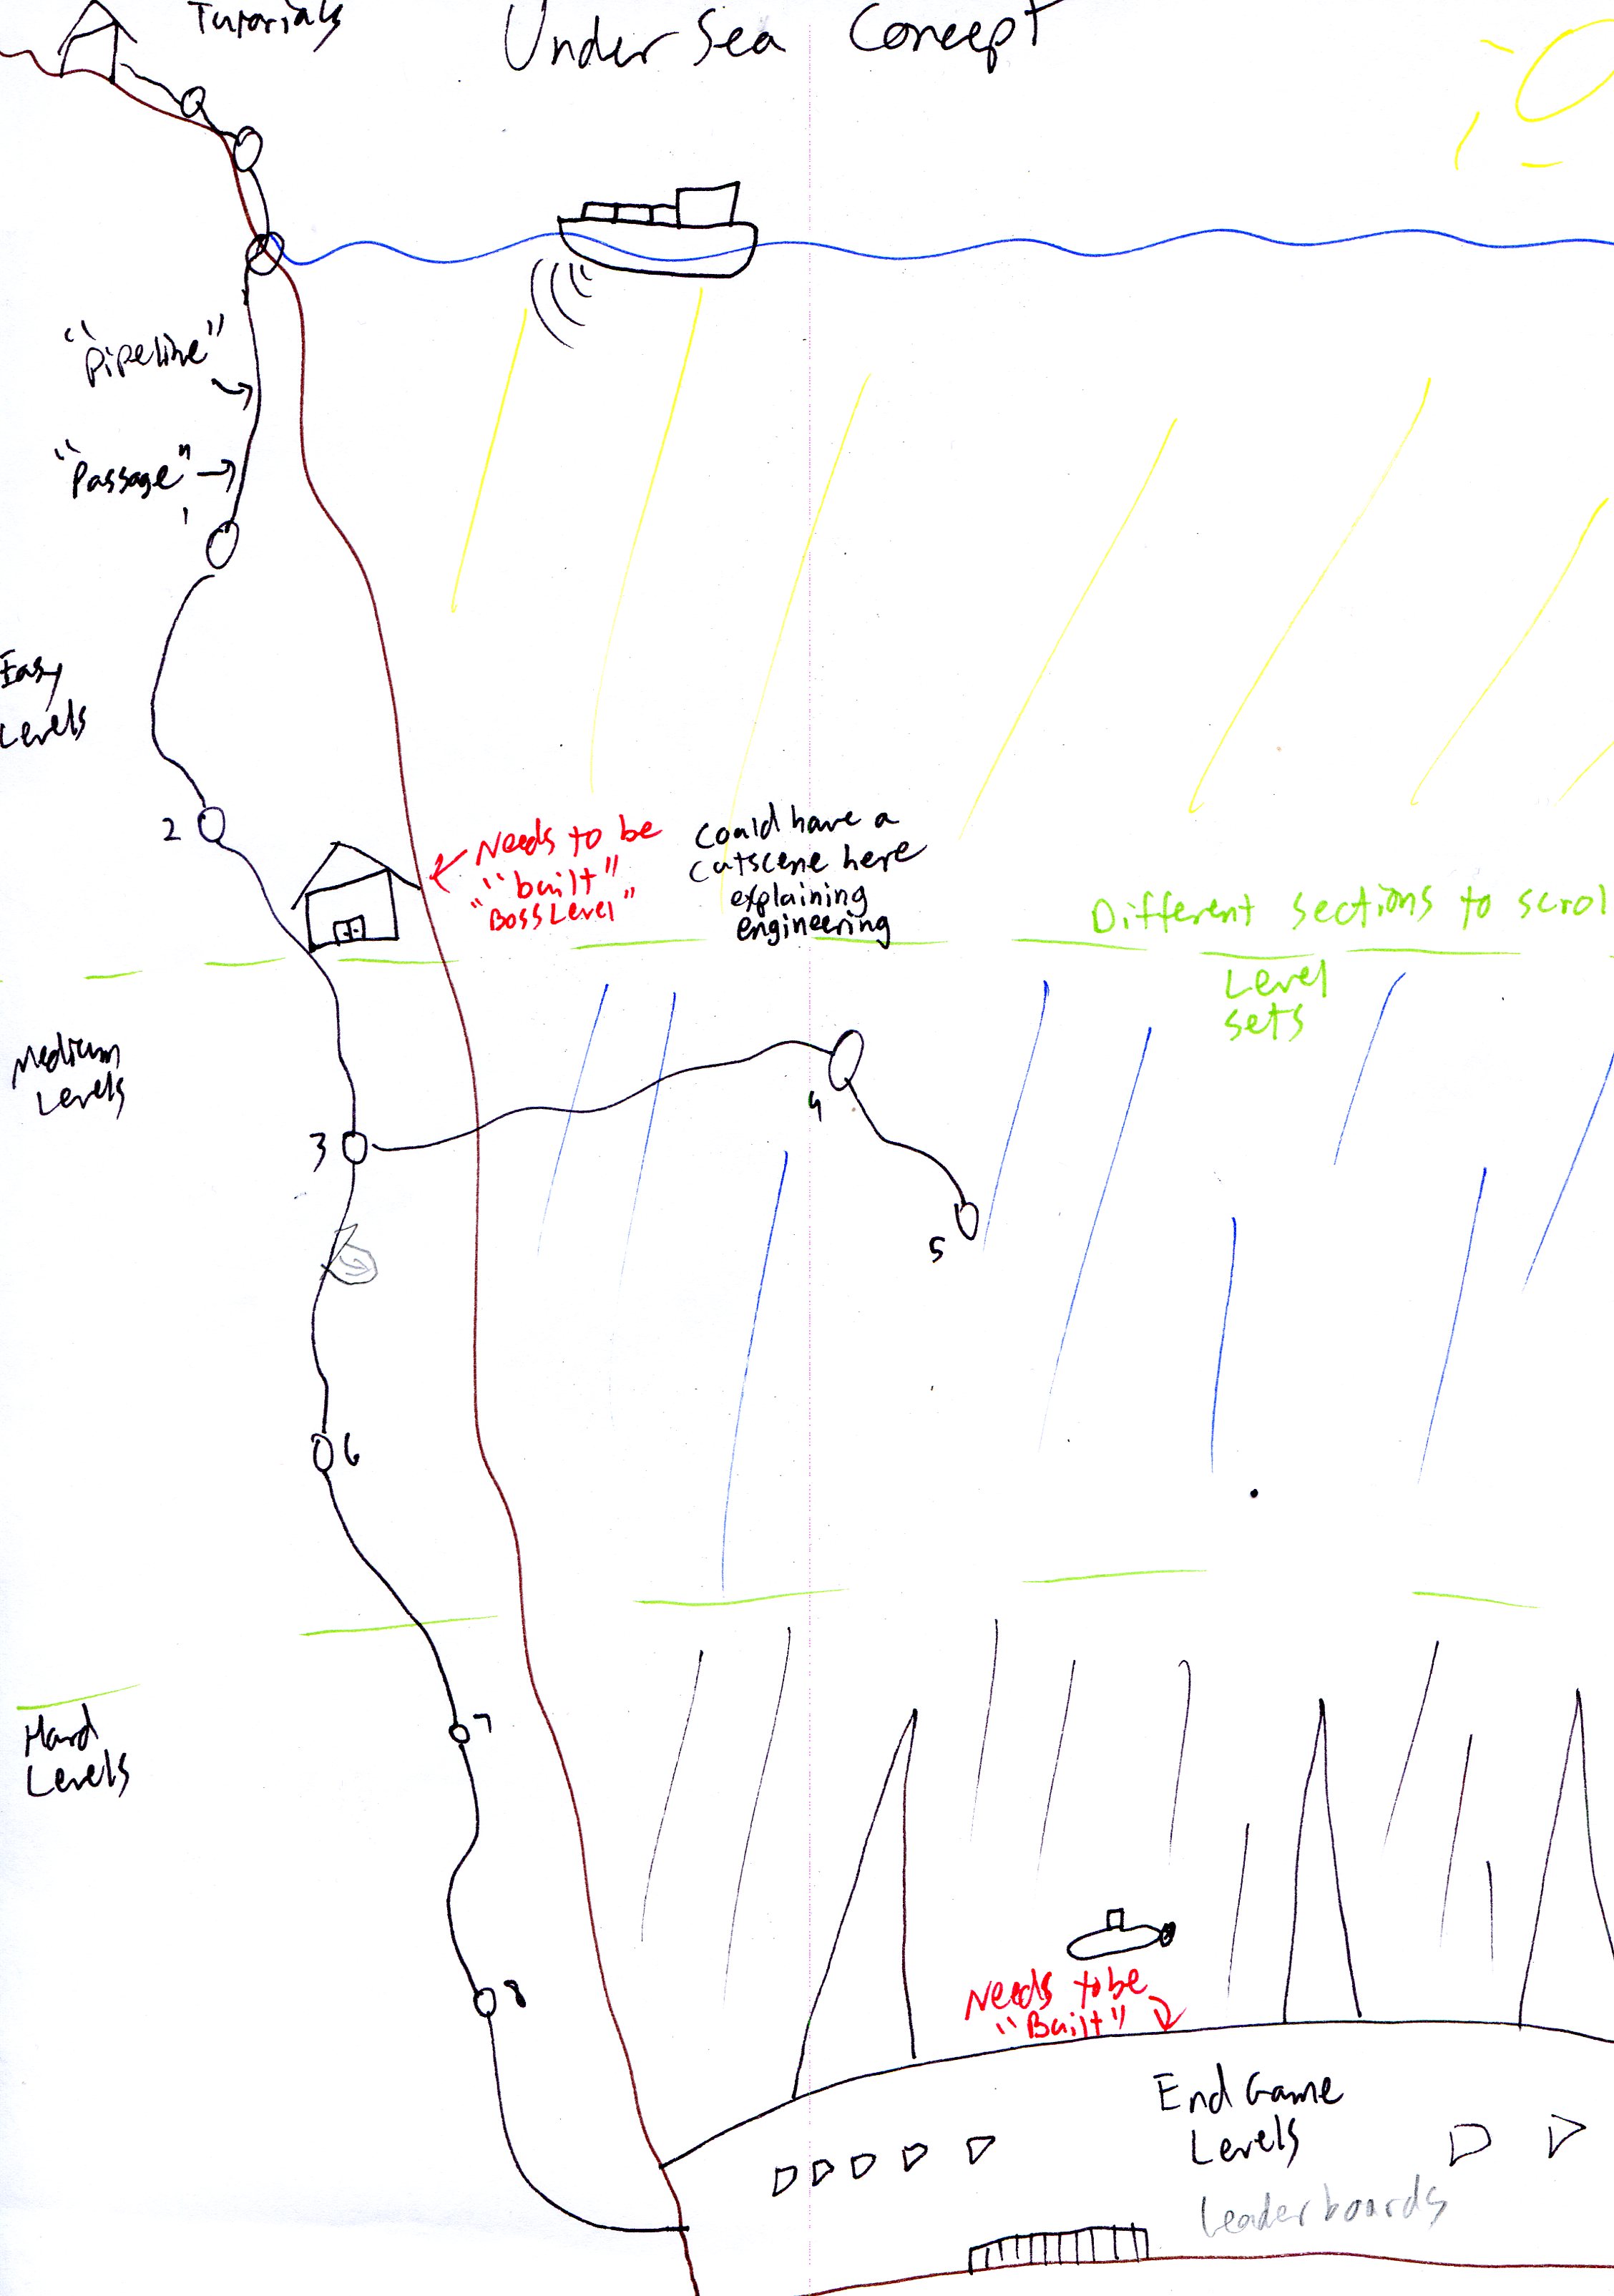 Tutorials
Under Sea Concept
"Pipeline"
"Passage"
1
Easy
Levels
2
Needs to be
"built"
"Boss Level"
Could have a
cutscene here
explaining
engineering
Different sections to scrol
Level
sets
Medium
Levels
3
4
5
6
Hard
Levels
7
8
Needs to be
"Built"
End Game
Levels
Leaderboards